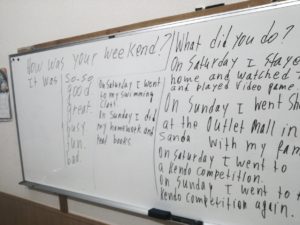 How was your weekend?
It was so-so
good
great
busy
fun.
bad.
On Saturday I went
to my swimming
class.
On Sunday I did
my homework and
read books
What did you do?
On Saturday I stayed
home and watched
and played video game
On Sunday I went
at the Outlet Mall in
Sanda with my
On Saturday I went to
a Kendo Competition.
On Sunday I went to
Kendo competition again.